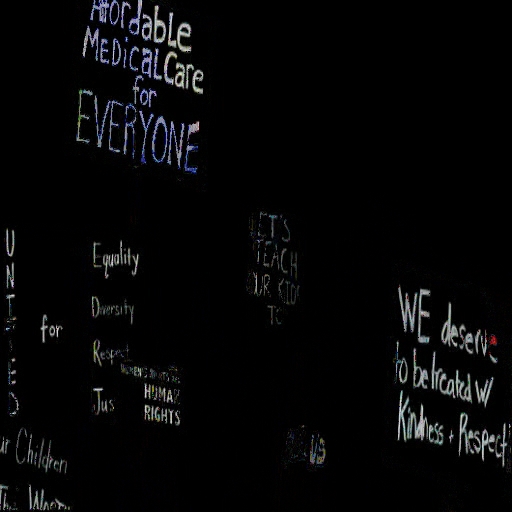 Affordable
MEDICAL Care
for
EVERYONE
UNITED
for
Equality
Diversity
Respect
Jus
WOMEN'S RIGHTS ARE
HUMAN
RIGHTS
LET'S
TEACH
OUR KIDS
TO
WE deserve
to be treated w/
Kindness + Respect
ur Children
US